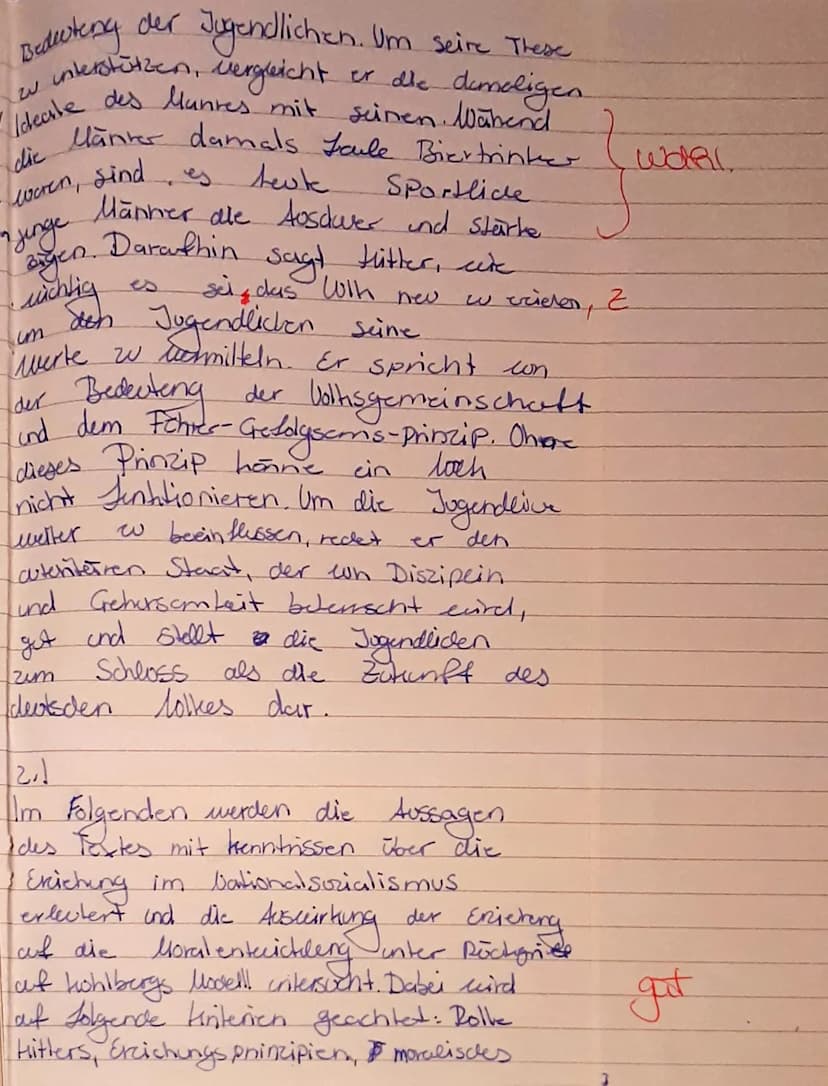 Bedeutung der Jugendlichen. Um seine These
zu unterstützen, vergleicht er die damaligen
Ideale des Mannes mit seinen. Während
die Männer damals faule Biertrinker
waren, sind es heute sportliche
junge Männer die Ausdauer und Stärke
zeigen. Daraufhin sagt Hitler, wie
wichtig es sei, das Volk neu zu erziehen, Z
um den Jugendlichen seine
Werte zu vermitteln. Er spricht von
der Bedeutung der Volksgemeinschaft
und dem Führer-Gefolgschafts-Prinzip. Ohne
dieses Prinzip könne ein Volk
nicht funktionieren. Um die Jugendliche
weiter zu beeinflussen, redet er den
autoritären Staat, der von Disziplin
und Gehorsamkeit beherrscht wird,
gut und stellt die Jugendlichen
zum Schloss als die Zukunft des
deutschen Volkes dar.
2.)
Im Folgenden werden die Aussagen
des Textes mit Kenntnissen über die
Erziehung im Nationalsozialismus
erleutert und die Auswirkung der Erziehung
auf die Moralentwicklung unter Rückgriff
auf Kohlbergs Modell untersucht. Dabei wird
auf folgende Kriterien geachtet: Rolle gut
Hitlers, Erziehungsprinzipien, moralisches